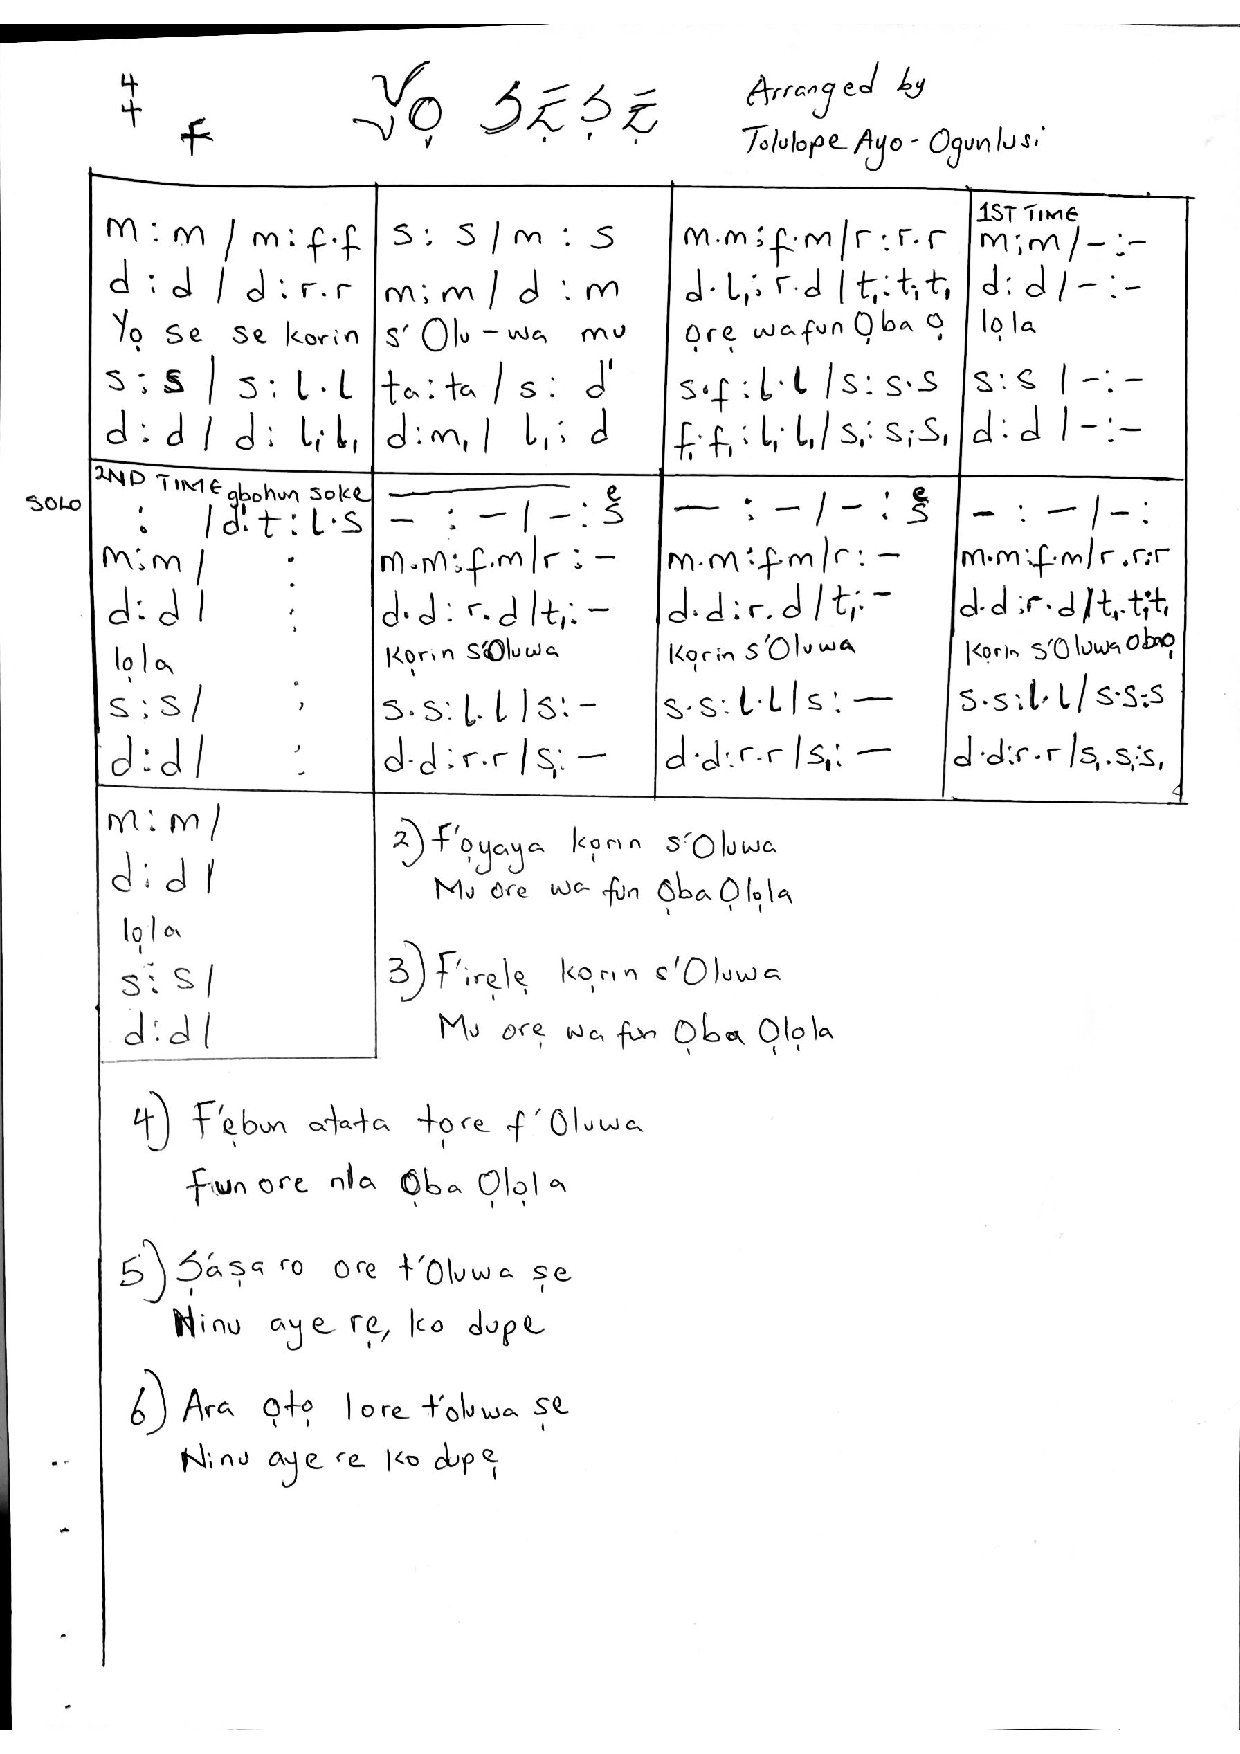 4
4
f
YỌ ṢẸṢẸ
Arranged by
Tolulope Ayo-Ogunlusi
m : m / m : f.f
d : d / d : r.r
Yọ se se korin
s : s / s : l.l
d : d / d : l₁.l₁
s : s / m : s
m : m / d : m
s' Olu-wa mu
ta : ta / s : d'
d : m₁ / l₁ : d
m.m : f.m / r : r.r
d.l₁ : r.d / t₁ : t₁.t₁
ọrẹ wa fun Ọba ọ
s.f : l.l / s : s.s
f₁.f₁ : l₁.l₁ / s₁ : s₁.s₁
1ST TIME
m : m / - : -
d : d / - : -
lọla
s : s / - : -
d : d / - : -
SOLO
2ND TIME gbohun soke
: / d'.t : l.s
m : m / :
d : d / :
lọla
s : s / :
d : d / :
e
- : - / - : s
m.m : f.m / r : -
d.d : r.d / t₁ : -
Kọrin s'Oluwa
s.s : l.l / s : -
d.d : r.r / s₁ : -
e
- : - / - : s
m.m : f.m / r : -
d.d : r.d / t₁ : -
Kọrin s'Oluwa
s.s : l.l / s : -
d.d : r.r / s₁ : -
- : - / - :
m.m : f.m / r.r : r
d.d : r.d / t₁.t₁ : t₁
Kọrin s'Oluwa Obaọ
s.s : l.l / s.s : s
d.d : r.r / s₁.s₁ : s₁
m : m /
d : d /
lọla
s : s /
d : d /
2) F'ọyaya kọrin s'Oluwa
Mu ore wa fun Ọba Ọlọla
3) F'irẹlẹ kọrin s'Oluwa
Mu orẹ wa fun Ọba Ọlọla
4) F'ẹbun atata tọre f'Oluwa
Fun ore nla Ọba Ọlọla
5) Ṣáṣaro ore t'Oluwa ṣe
Ninu aye rẹ, ko dupe
6) Ara ọtọ lore t'oluwa ṣe
Ninu aye re ko dupẹ